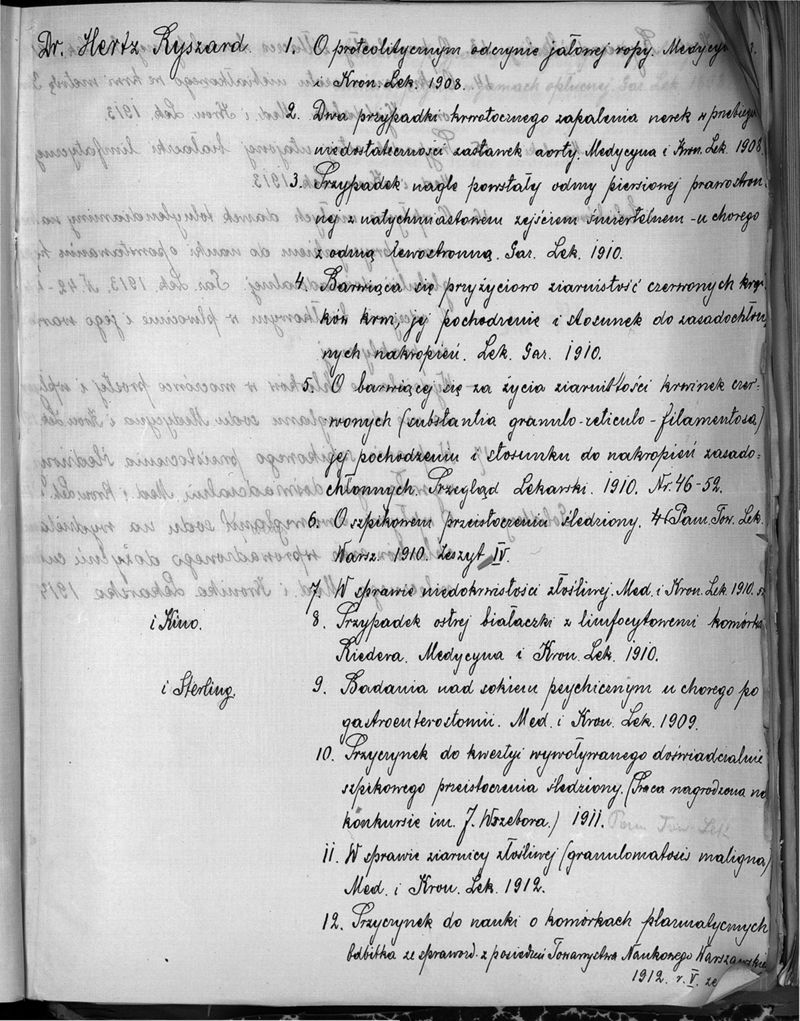 Dr. Hertz Ryszard. 1. O proteolitycznym odczynie jałowej ropy.
i Kron. Lek. 1908.
2. Dwa przypadki krwotocznego zapalenia nerek w przebiegu
niedostateczności zastawek aorty. Medycyna i Kron. Lek. 1908
3. Przypadek nagle powstałej odmy piersiowej prawostron-
nej z natychmiastowem zejściem śmiertelnem - u chorego
z odmą lewostronną. Gaz. Lek. 1910.
4. Barwiąca się przyżyciowo ziarnistość czerwonych krąż-
ków krwi, jej pochodzenie i stosunek do zasadochłon-
nych nakropień. Lek. Gaz. 1910.
5. O barwiącej się za życia ziarnistości krwinek czer-
wonych (substantia granulo-reticulo-filamentosa)
jej pochodzeniu i stosunku do nakropień zasado-
chłonnych. Przegląd Lekarski. 1910. Nr. 46-52.
6. O szpikowem przeistoczeniu śledziony. Pam. Tow. Lek.
Warsz. 1910. Zeszyt IV.
7. W sprawie niedokrwistości złośliwej. Med. i Kron. Lek. 1910.
i Kino. 8. Przypadek ostrej białaczki z limfocytowemi komórka
Riedera. Medycyna i Kron. Lek. 1910.
i Sterling. 9. Badania nad sokiem psychicznym u chorego po
gastroenterostomii. Med. i Kron. Lek. 1909.
10. Przyczynek do kwestyi wywoływanego doświadczalnie
szpikowego przeistoczenia śledziony. (Praca nagrodzona na
konkursie im. J. Wszebora.) 1911. Pam. Tow. Lek
11. W sprawie ziarnicy złośliwej (granulomatosis maligna)
Med. i Kron. Lek. 1912.
12. Przyczynek do nauki o komórkach plazmatycznych
Odbitka ze sprawozd. z posiedzeń Towarzystwa Naukowego Warszawskie
1912. r. V. ze